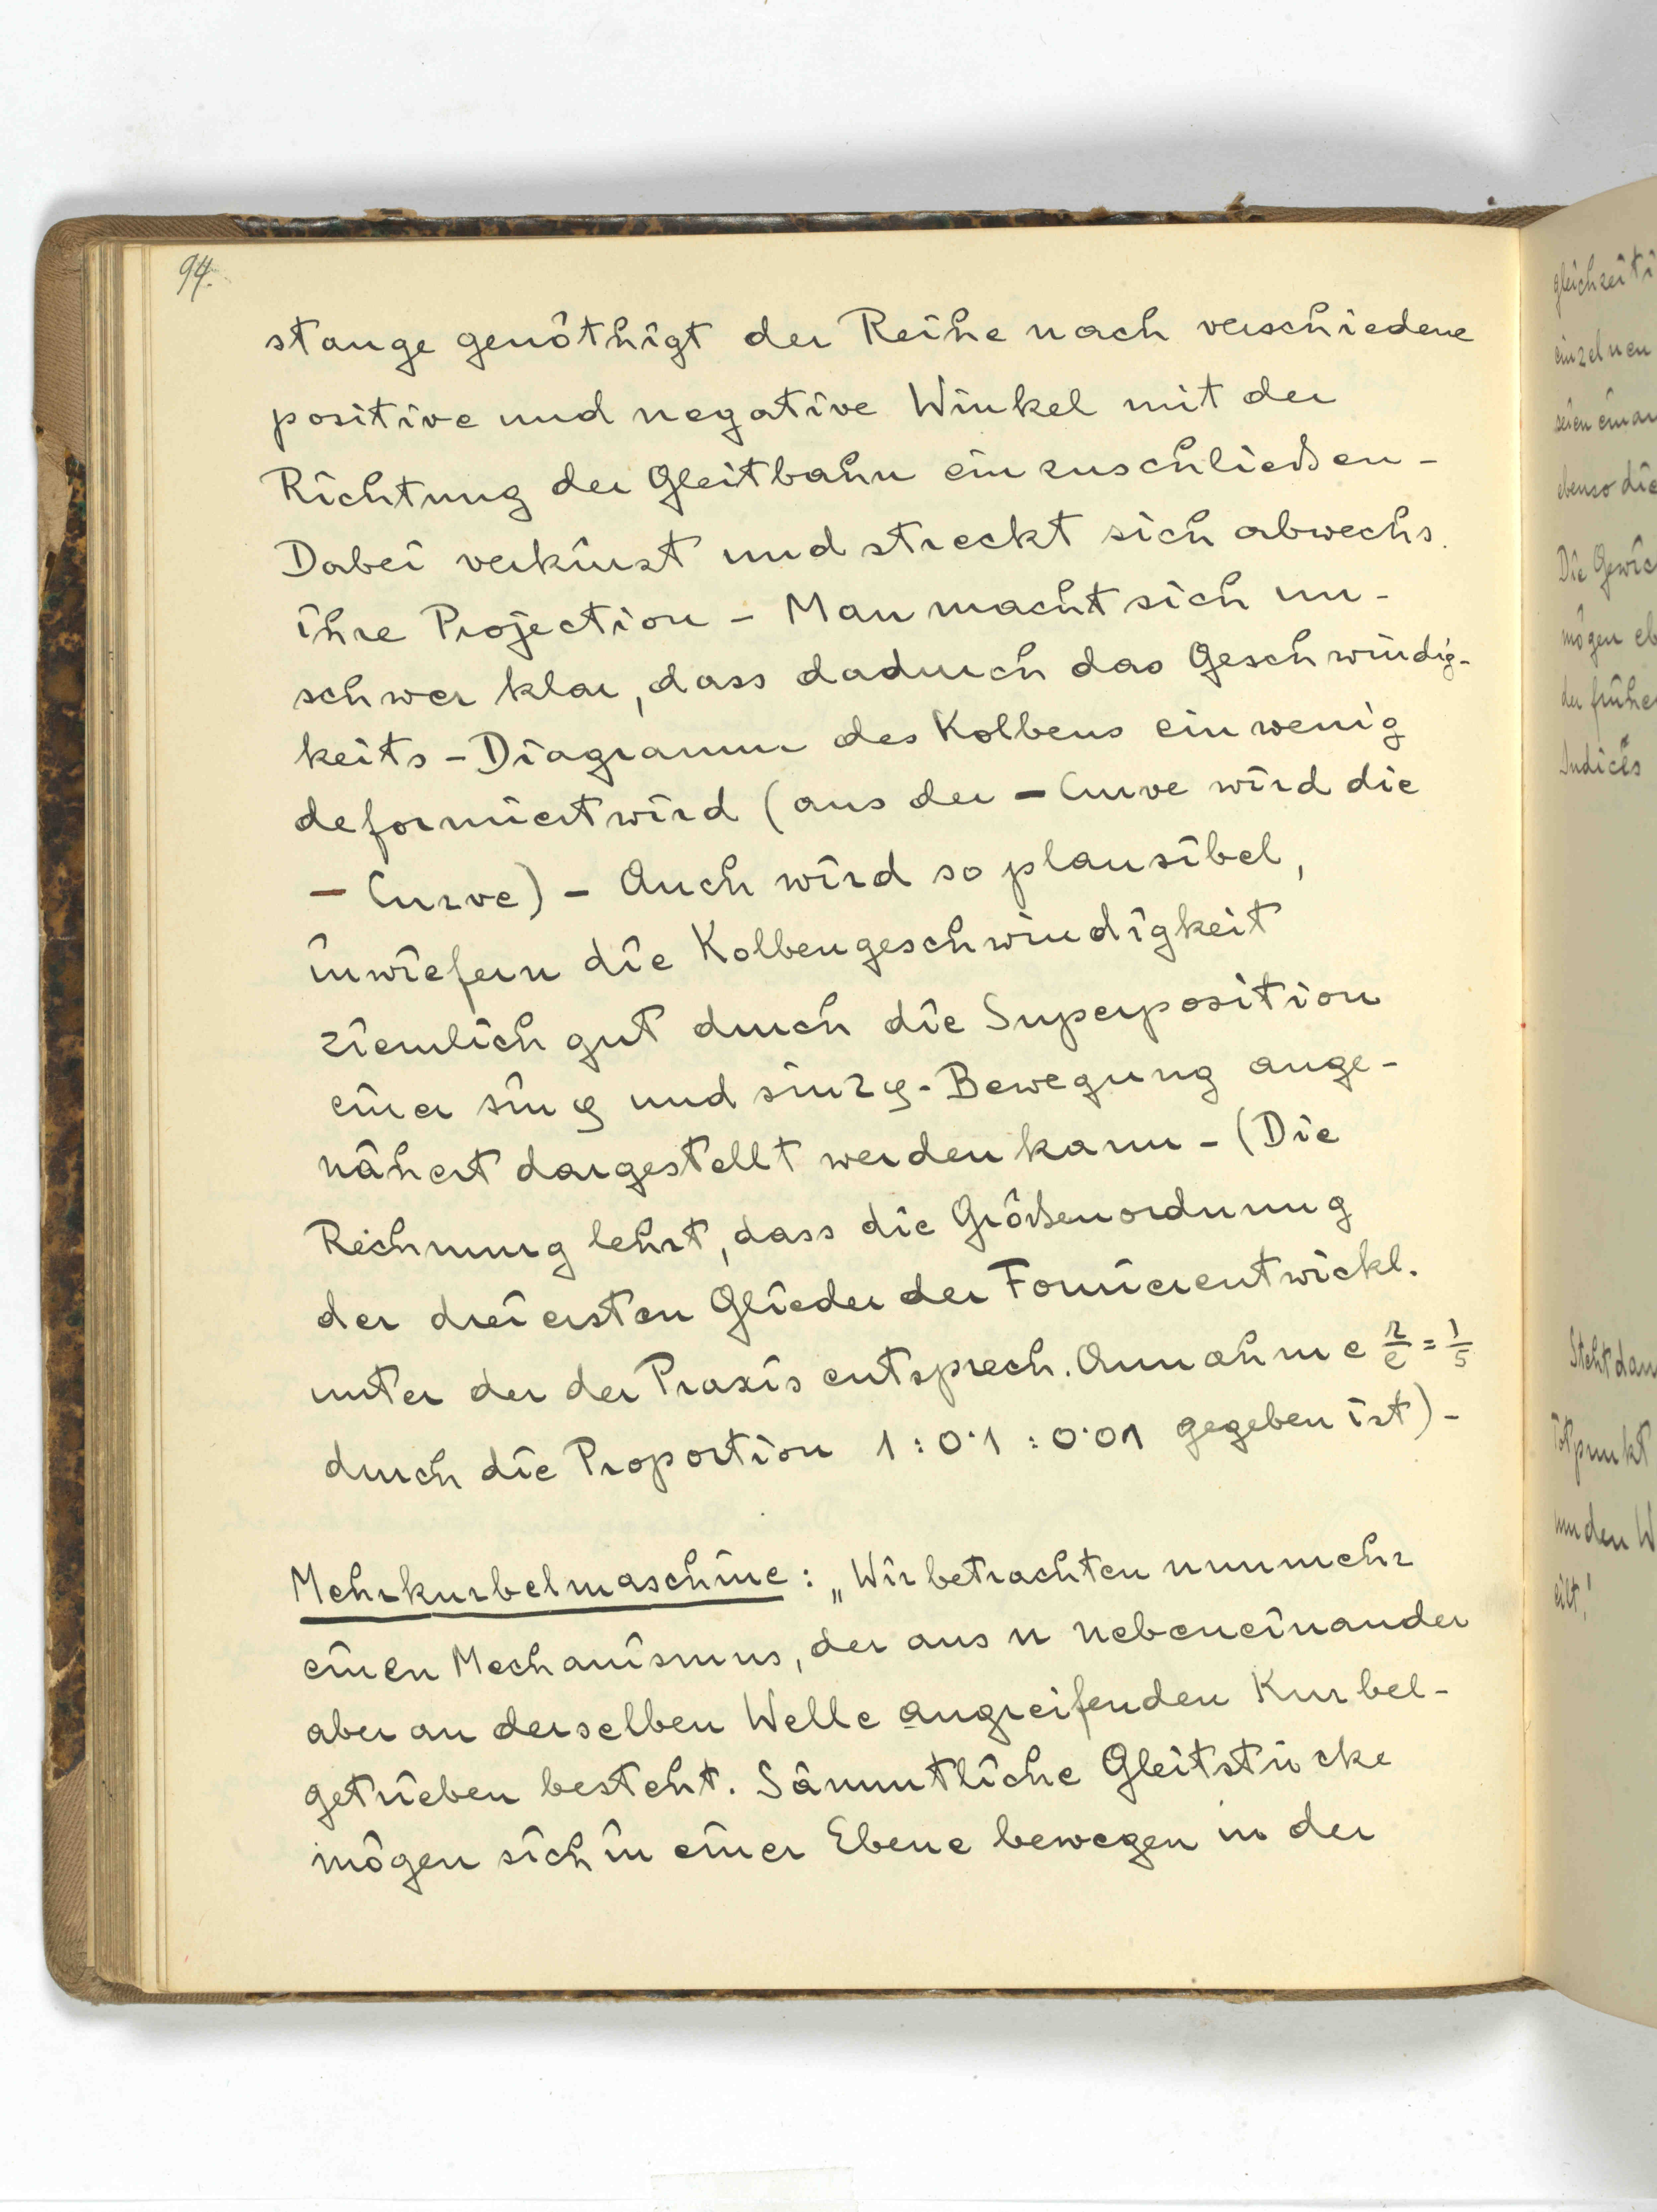 94.
stange genöthigt der Reihe nach verschiedene
positive und negative Winkel mit der
Richtung der Gleitbahn einzuschließen -
Dabei verkürzt und streckt sich abwechs.
ihre Projection - Man macht sich un-
schwer klar, dass dadurch das Geschwindig-
keits - Diagramm des Kolbens ein wenig
deformiert wird (aus der - Curve wird die
- Curve) - Auch wird so plausibel,
inwiefern die Kolbengeschwindigkeit
ziemlich gut durch die Superposition
einer sin φ und sin 2φ - Bewegung ange-
nähert dargestellt werden kann - (Die
Rechnung lehrt, dass die Größenordnung
der drei ersten Glieder der Fourierentwickl.
unter der der Praxis entsprech. Annahme r/l = 1/5
durch die Proportion 1 : 0·1 : 0·01 gegeben ist) -
Mehrkurbelmaschine : „Wir betrachten nunmehr
einen Mechanismus, der aus n nebeneinander
aber an derselben Welle angreifenden Kurbel-
getrieben besteht. Sämmtliche Gleitstücke
mögen sich in einer Ebene bewegen in der
gleichzeiti
einzelnen
seien einan
ebenso die
Die Gewic
mögen eb
der frühe
Indices
Steht dan
Totpunkt
um den W
eilt!